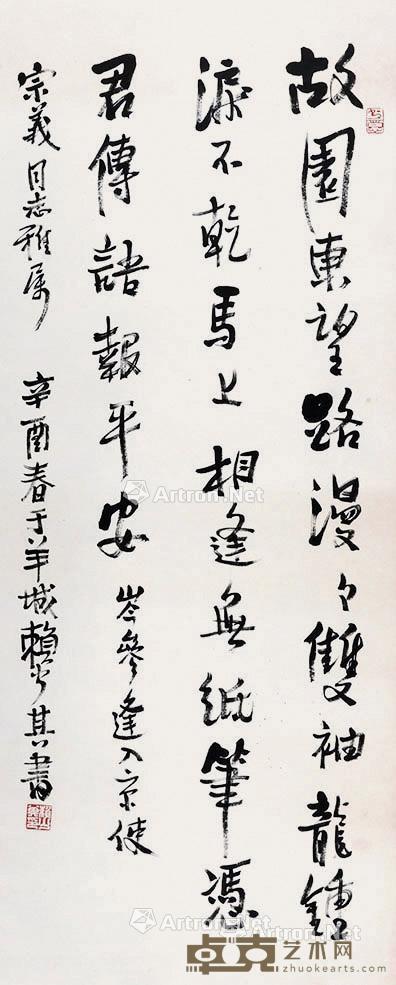 故園東望路漫々雙袖龍鍾
淚不乾馬上相逢無紙筆憑
君傳語報平安 岑參逢入京使
宗義同志雅屬 辛酉春于羊城賴少其書
Artron.Net
Artron.Net
Artron.Net
Artron.Net
卓克艺术网
zhuokearts.com